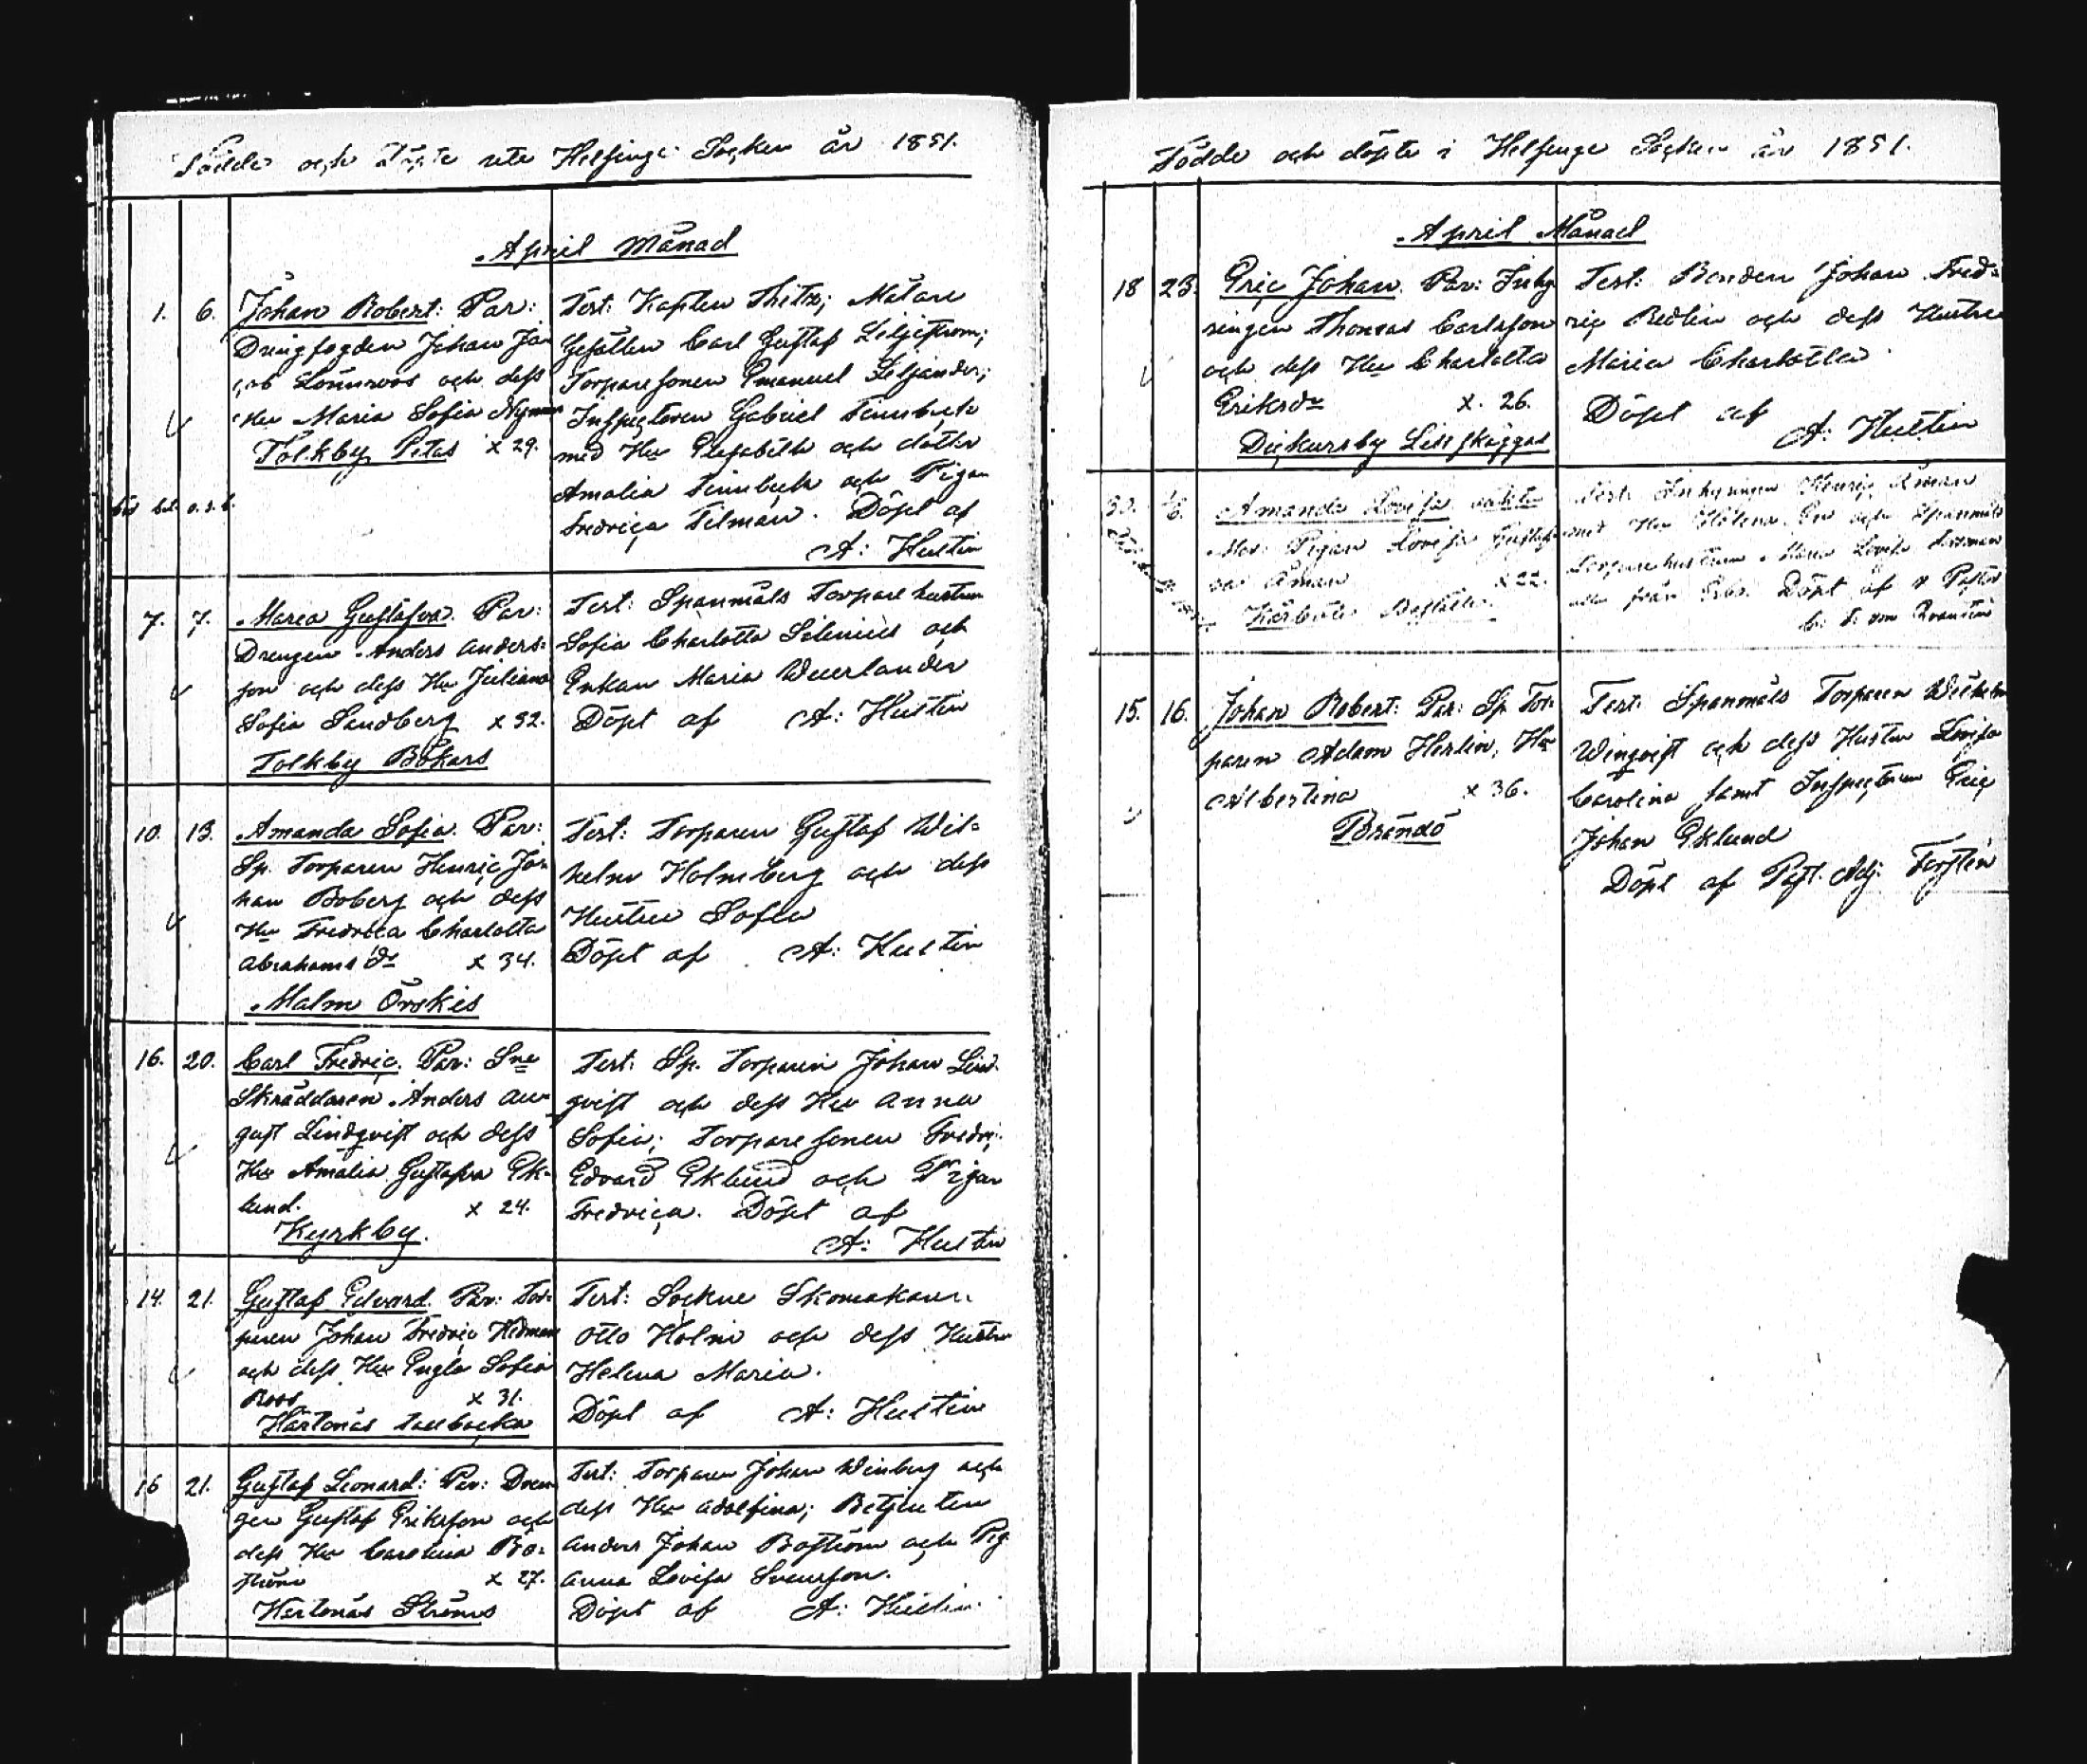 Födde och döpte uti Helsinge Socken år 1851.
April Månad
1. 6. Johan Robert: Par:
Drengfogden Johan Ja-
cob Lönnroos och dess
Hu Maria Sofia Nyman
Tolkby Petas x 29.
Test: Kapten Thitz; Målare
Gesällen Carl Gustaf Liljeström;
Torparesonen Emanuel Seljander;
Inspectoren Gabriel Finnbeck
med Hu Elisabeth och dotter
Amalia Finnbeck och Pigan
Fredrica Tilman. Döpt af
A: Hustin
7. 7. Maria Gustafva. Par:
Drengen Anders Anders-
son och dess Hu Juliana
Sofia Sandberg x 32.
Tolkby Bökars
Test: Spanmåls Torpare hustrun
Sofia Charlotta Silenius och
Enkan Maria Weurlander
Döpt af A: Hustin
10. 13. Amanda Sofia. Par:
Sp. Torparen Henric Jo-
han Boberg och dess
Hu Fredrica Charlotta
Abrahams dr x 34.
Malm Örskis
Test: Torparen Gustaf Wil-
helm Holmberg och dess
Hustru Sofia
Döpt af A: Hustin
16. 20. Carl Fredric. Par: Sne
Skräddaren Anders Au-
gust Lindqvist och dess
Hu Amalia Gustafva Ek-
lund. x 24.
Kyrkby.
Test: Sp. Torparen Johan Lind-
qvist och dess Hu Anna
Sofia; Torparesonen Fredric
Edvard Eklund och Pigan
Fredrica. Döpt af
A: Hustin
14. 21. Gustaf Edvard. Par: Tor-
paren Johan Fredric Hedman
och dess Hu Engla Sofia
Roos x 31.
Hertonäs tallbacka
Test: Sockne Skomakaren
Otto Holm och dess Hustru
Helena Maria.
Döpt af A: Hustin
16 21. Gustaf Leonard: Par: Dren-
gen Gustaf Eriksson och
dess Hu Carolina Bo-
ström x 27.
Hertonäs Ströms
Test: Torparen Johan Winberg och
dess Hu Adolfina; Betjenten
Anders Johan Boström och Pig.
Anna Lovisa Svensson.
Döpt af A: Hustin
Födde och döpte i Helsinge Socken år 1851.
April Månad
18 23. Eric Johan. Par: Inhy-
singen Thomas Carlsson
och dess Hu Charlotta
Eriksdr x. 26.
Dickursby Lillskäggas
Test: Bonden Johan Fred-
ric Redlin och dess Hustru
Maria Charlotta
Döpt af
A: Hustin
Amanda Lovisa oäkta
Mor: Pigan Lovisa Gustafs-
dr Åman x 22.
Test: Inhysingen Henric Åman
med Hu Helena och Spanmåls
Torparehustrun Maria Lovisa
från Döpt af V. Pastor
15. 16. Johan Robert: Par: Sp. Tor-
paren Adam Herlin, Hu
Albertina x 36.
Brändö
Test: Spanmåls Torparen Wilhelm
Winqvist och dess Hustru Lovisa
Carolina samt Inspectoren Eric
Johan Eklund
Döpt af Past. Adj. Forstén